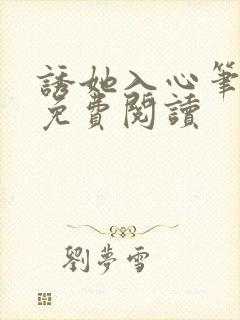 誘她入心筆
免費閱讀
劉夢雪